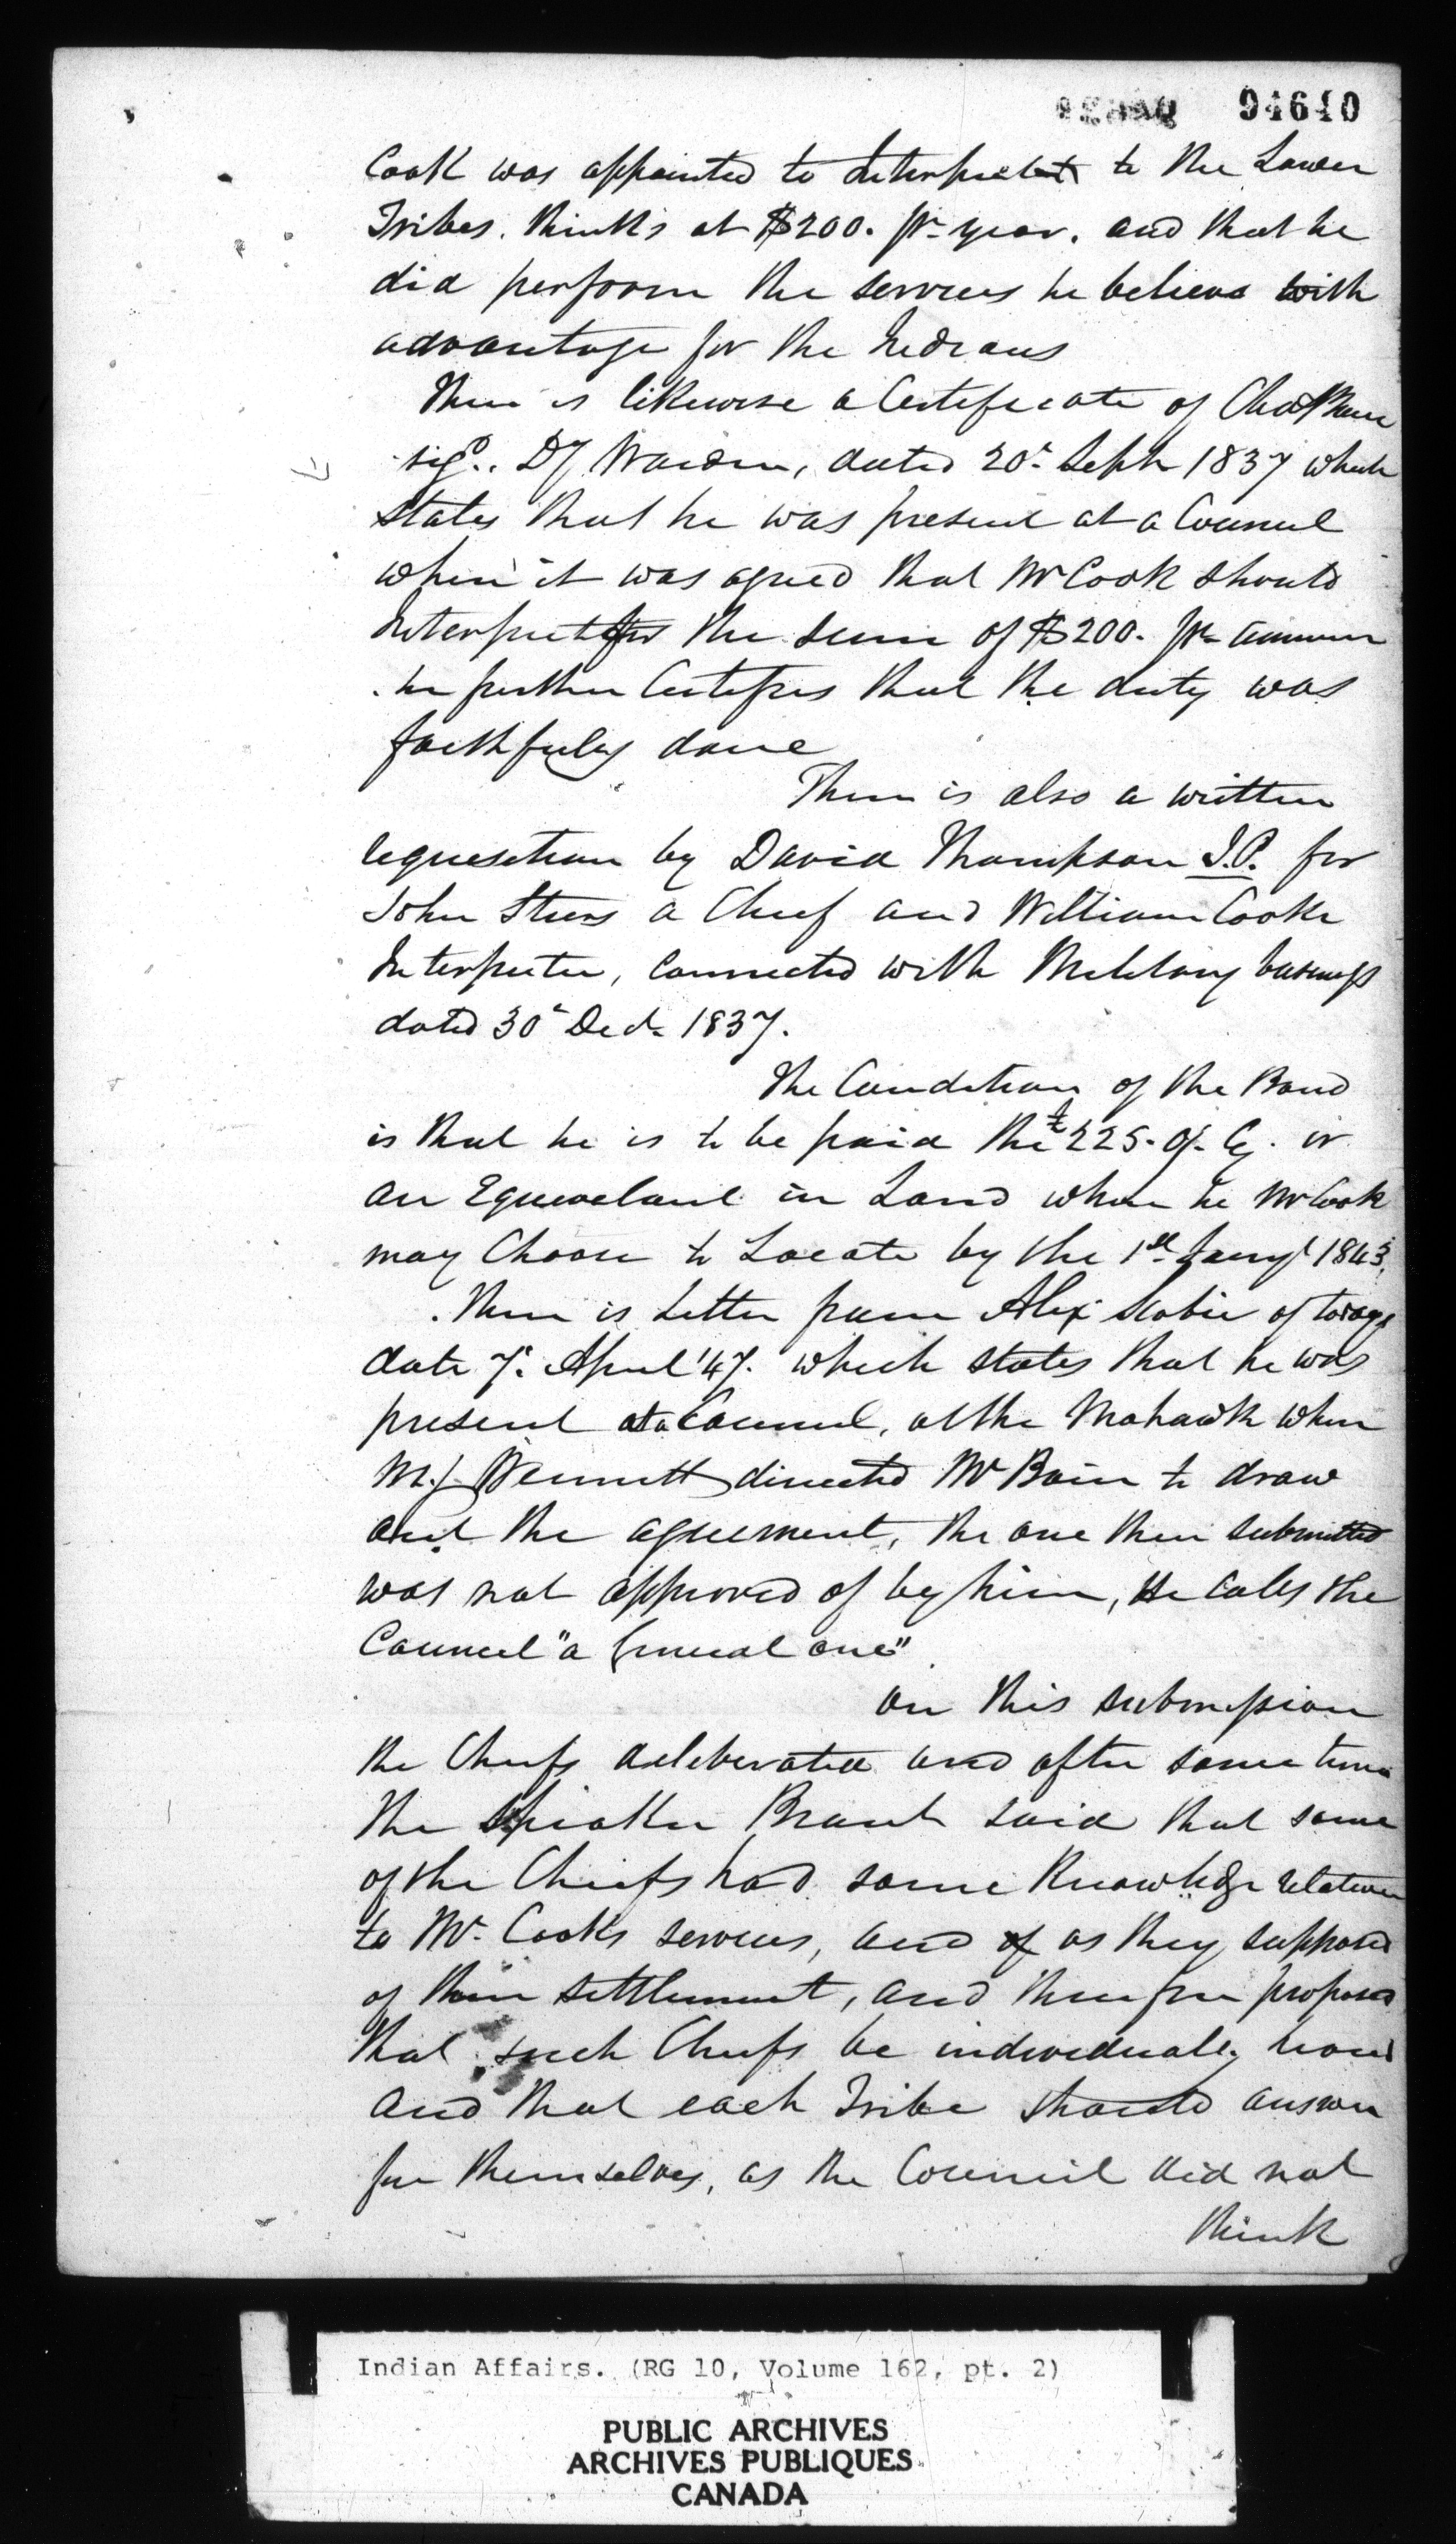 94640
Cook was appointed to Interpret to the Lower
Tribes. thinks at $200. pr year. and that he
did perform the services he believes with
advantage for the Indians
There is likewise a Certificate of Chas Bain
sigd. Dy Warden, dated 20th Septr 1837 which
states that he was present at a Council
when it was agreed that Mr Cook should
Interpret for the sum of $200. pr annum
he further Certifies that the duty was
faithfuly done
There is also a written
requesition by David Thompson J.P. for
John Steers a Chief and William Cooke
Interpeter, connected with Military business
dated 30th Decr 1837.
The Condition of the Bond
is that he is to be paid the £225. of Cy. or
an Equevelant in Land when he Mr Cook
may Choose to Locate by the 1st Jany 1843.
There is Letter from Alex Scobie of
date 7th April '47. which states that he was
present at a Council, at the Mohawk when
Mr Bennett directed Mr Bain to draw
out the agreement, the one then submitted
was not approved of by him, He calls the
Council "a General one"
On this submission
the Chiefs deleberated and after some time
the Speaker Brant said that some
of the Chiefs had some Knowledge relative
to Mr. Cooks services, and as they supposed
of their settlement, and therefore proposed
that such Chiefs be individualy heard
and that each Tribe should answer
for themselves, as the Council did not
think
Indian Affairs. (RG 10, Volume 162, pt. 2)
PUBLIC ARCHIVES
ARCHIVES PUBLIQUES
CANADA